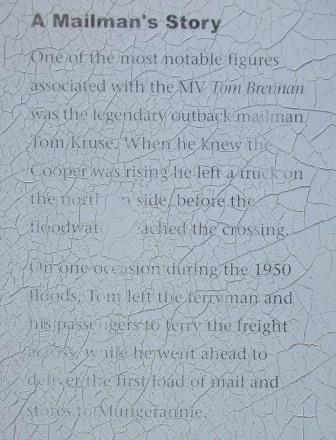 A Mailman's Story
One of the most notable figures
associated with the MV Tom Brennan
was the legendary outback mailman
Tom Kruse. When he knew the
Cooper was rising he left a truck on
the northern side, before the
floodwaters reached the crossing.
On one occasion during the 1950
floods, Tom left the ferryman and
his passengers to ferry the freight
across, while he went ahead to
deliver the first load of mail and
stores to Mungerannie.